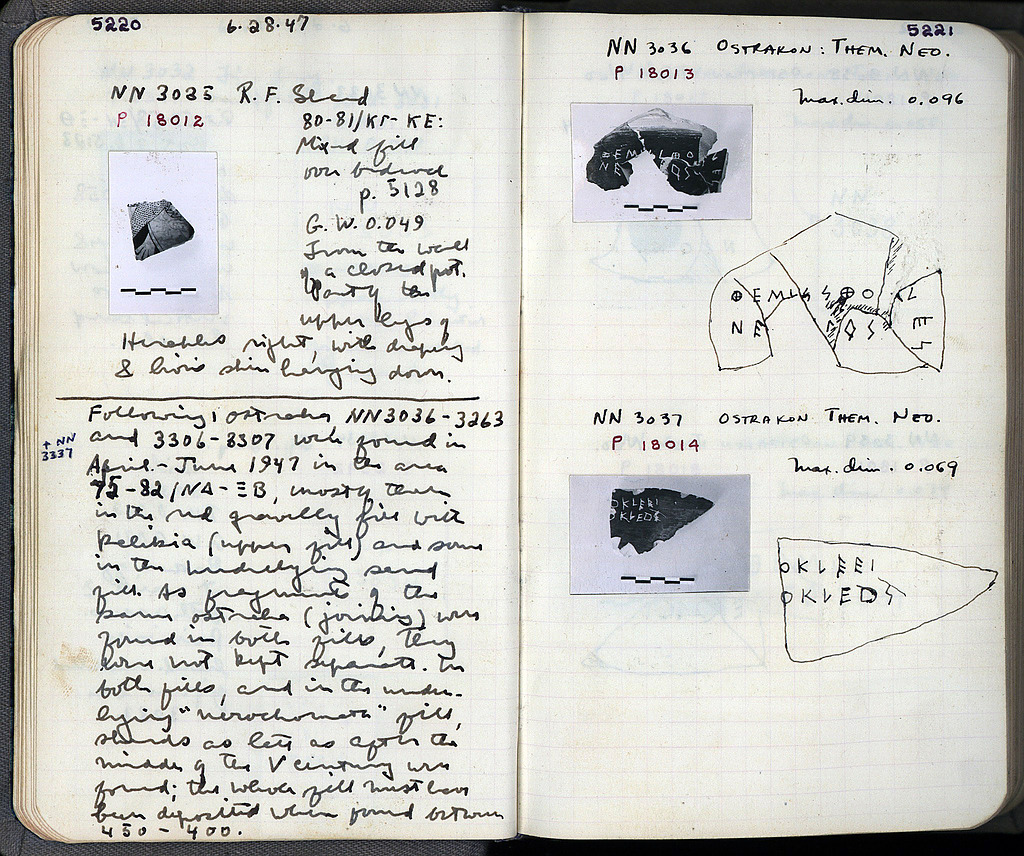 5220
6·28·47
NN 3035 R. F. Sherd
P 18012
80-81/ΚΓ-ΚΕ:
Mixed fill
over bedrock
p. 5128
G. W. 0.049
From the wall
of a closed pot.
Part of the
upper legs of
Herakles right, with drapery
& lion's skin hanging down.
Following ostraka, NN3036-3263
and 3306-3307 were found in
+ NN
3337
April-June 1947 in the area
75-82/ΝΑ-ΞΒ, mostly
in the red gravelly fill with
Kelibia (upper fill) and some
in the underlying sand
fill. As fragments of the
same ostraka (joining) were
found in both fills, they
were not kept separate. In
both fills, and in the under-
lying "nerochomata" fill,
sherds as late as after the
middle of the V century were
found; the whole fill must have
been deposited where found between
450-400.
5221
NN 3036 OSTRAKON: THEM. NEO.
P 18013
Max. dim. 0.096
ΝΕ
NN 3037 OSTRAKON THEM. NEO.
P 18014
Max. dim. 0.069
ΟΚLΕΕΙ
ΟΚLΕDS